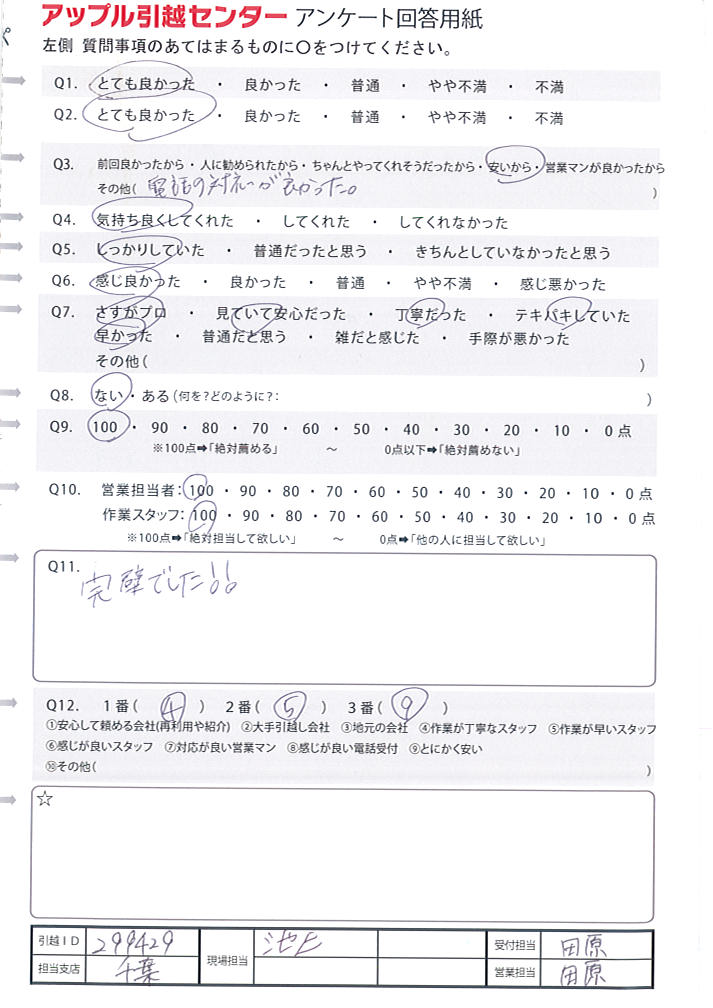 アップル引越センター アンケート回答用紙
左側 質問事項のあてはまるものに〇をつけてください。
Q1. とても良かった ・ 良かった ・ 普通 ・ やや不満 ・ 不満
Q2. とても良かった ・ 良かった ・ 普通 ・ やや不満 ・ 不満
Q3. 前回良かったから・人に勧められたから・ちゃんとやってくれそうだったから・安いから・営業マンが良かったから
その他( 電話の対応が良かった。 )
Q4. 気持ち良くしてくれた ・ してくれた ・ してくれなかった
Q5. しっかりしていた ・ 普通だったと思う ・ きちんとしていなかったと思う
Q6. 感じ良かった ・ 良かった ・ 普通 ・ やや不満 ・ 感じ悪かった
Q7. さすがプロ ・ 見ていて安心だった ・ 丁寧だった ・ テキパキしていた
早かった ・ 普通だと思う ・ 雑だと感じた ・ 手際が悪かった
その他( )
Q8. ない・ある(何を?どのように?: )
Q9. 100 ・ 90 ・ 80 ・ 70 ・ 60 ・ 50 ・ 40 ・ 30 ・ 20 ・ 10 ・ 0点
※100点➡「絶対薦める」 ～ 0点以下➡「絶対薦めない」
Q10. 営業担当者:100 ・ 90 ・ 80 ・ 70 ・ 60 ・ 50 ・ 40 ・ 30 ・ 20 ・ 10 ・ 0点
作業スタッフ:100 ・ 90 ・ 80 ・ 70 ・ 60 ・ 50 ・ 40 ・ 30 ・ 20 ・ 10 ・ 0点
※100点➡「絶対担当して欲しい」 ～ 0点➡「他の人に担当して欲しい」
Q11.
完璧でした!!
Q12. 1番( ④ ) 2番( ⑤ ) 3番( ⑨ )
①安心して頼める会社(再利用や紹介) ②大手引越し会社 ③地元の会社 ④作業が丁寧なスタッフ ⑤作業が早いスタッフ
⑥感じが良いスタッフ ⑦対応が良い営業マン ⑧感じが良い電話受付 ⑨とにかく安い
⑩その他( )
☆
引越ID 299429 現場担当 池上 受付担当 田原
担当支店 千葉 営業担当 田原